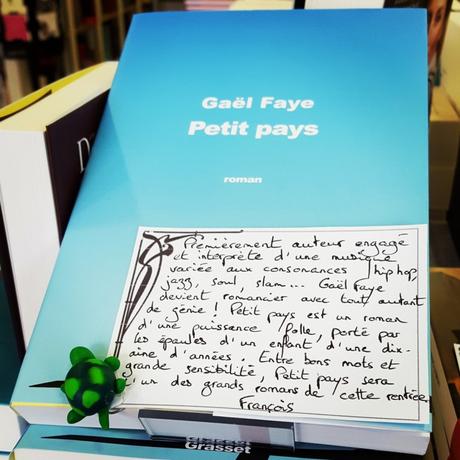 Gaël Faye
Petit pays
roman
Premièrement auteur engagé
et interprète d'une musique
variée aux consonances hip hop,
jazz, soul, slam... Gaël Faye
devient romancier avec tout autant
de génie ! Petit pays est un roman
d'une puissance folle, porté par
les épaules d'un enfant d'une diz-
aine d'années. Entre bons mots et
grande sensibilité, Petit pays sera
l'un des grands romans de cette rentrée
François
Grasset